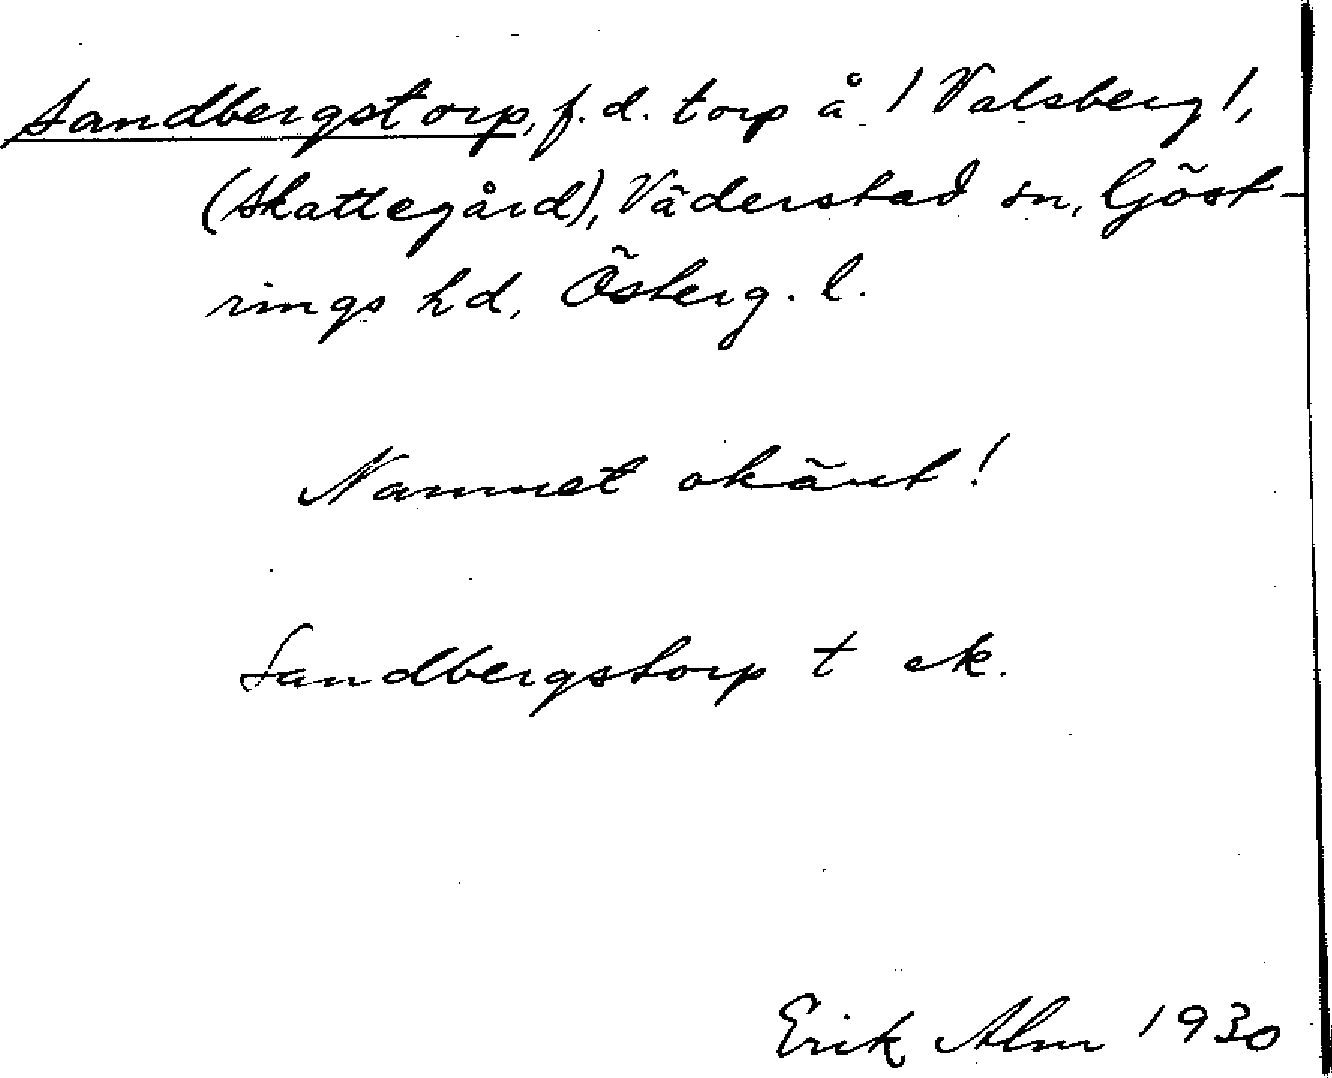 Sandbergstorp, f.d. torp å 1 Valsberg 1,
(Skattegård), Väderstad sn, Göst-
rings hd, Österg. l.
Namnet okänt!
Sandbergstorp t ek.
Erik Alm 1930